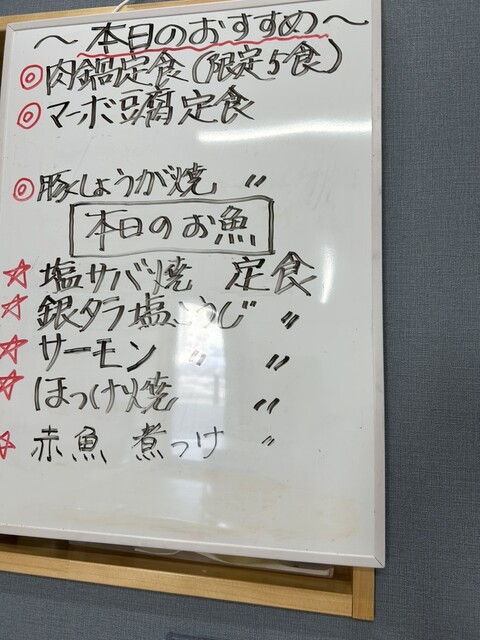 ～本日のおすすめ～
◎肉鍋定食(限定5食)
◎マーボ豆腐定食
◎豚しょうが焼 〃
本日のお魚
☆塩サバ焼 定食
☆銀ダラ塩こうじ 〃
☆サーモン 〃 〃
☆ほっけ焼 〃
☆赤魚 煮つけ 〃